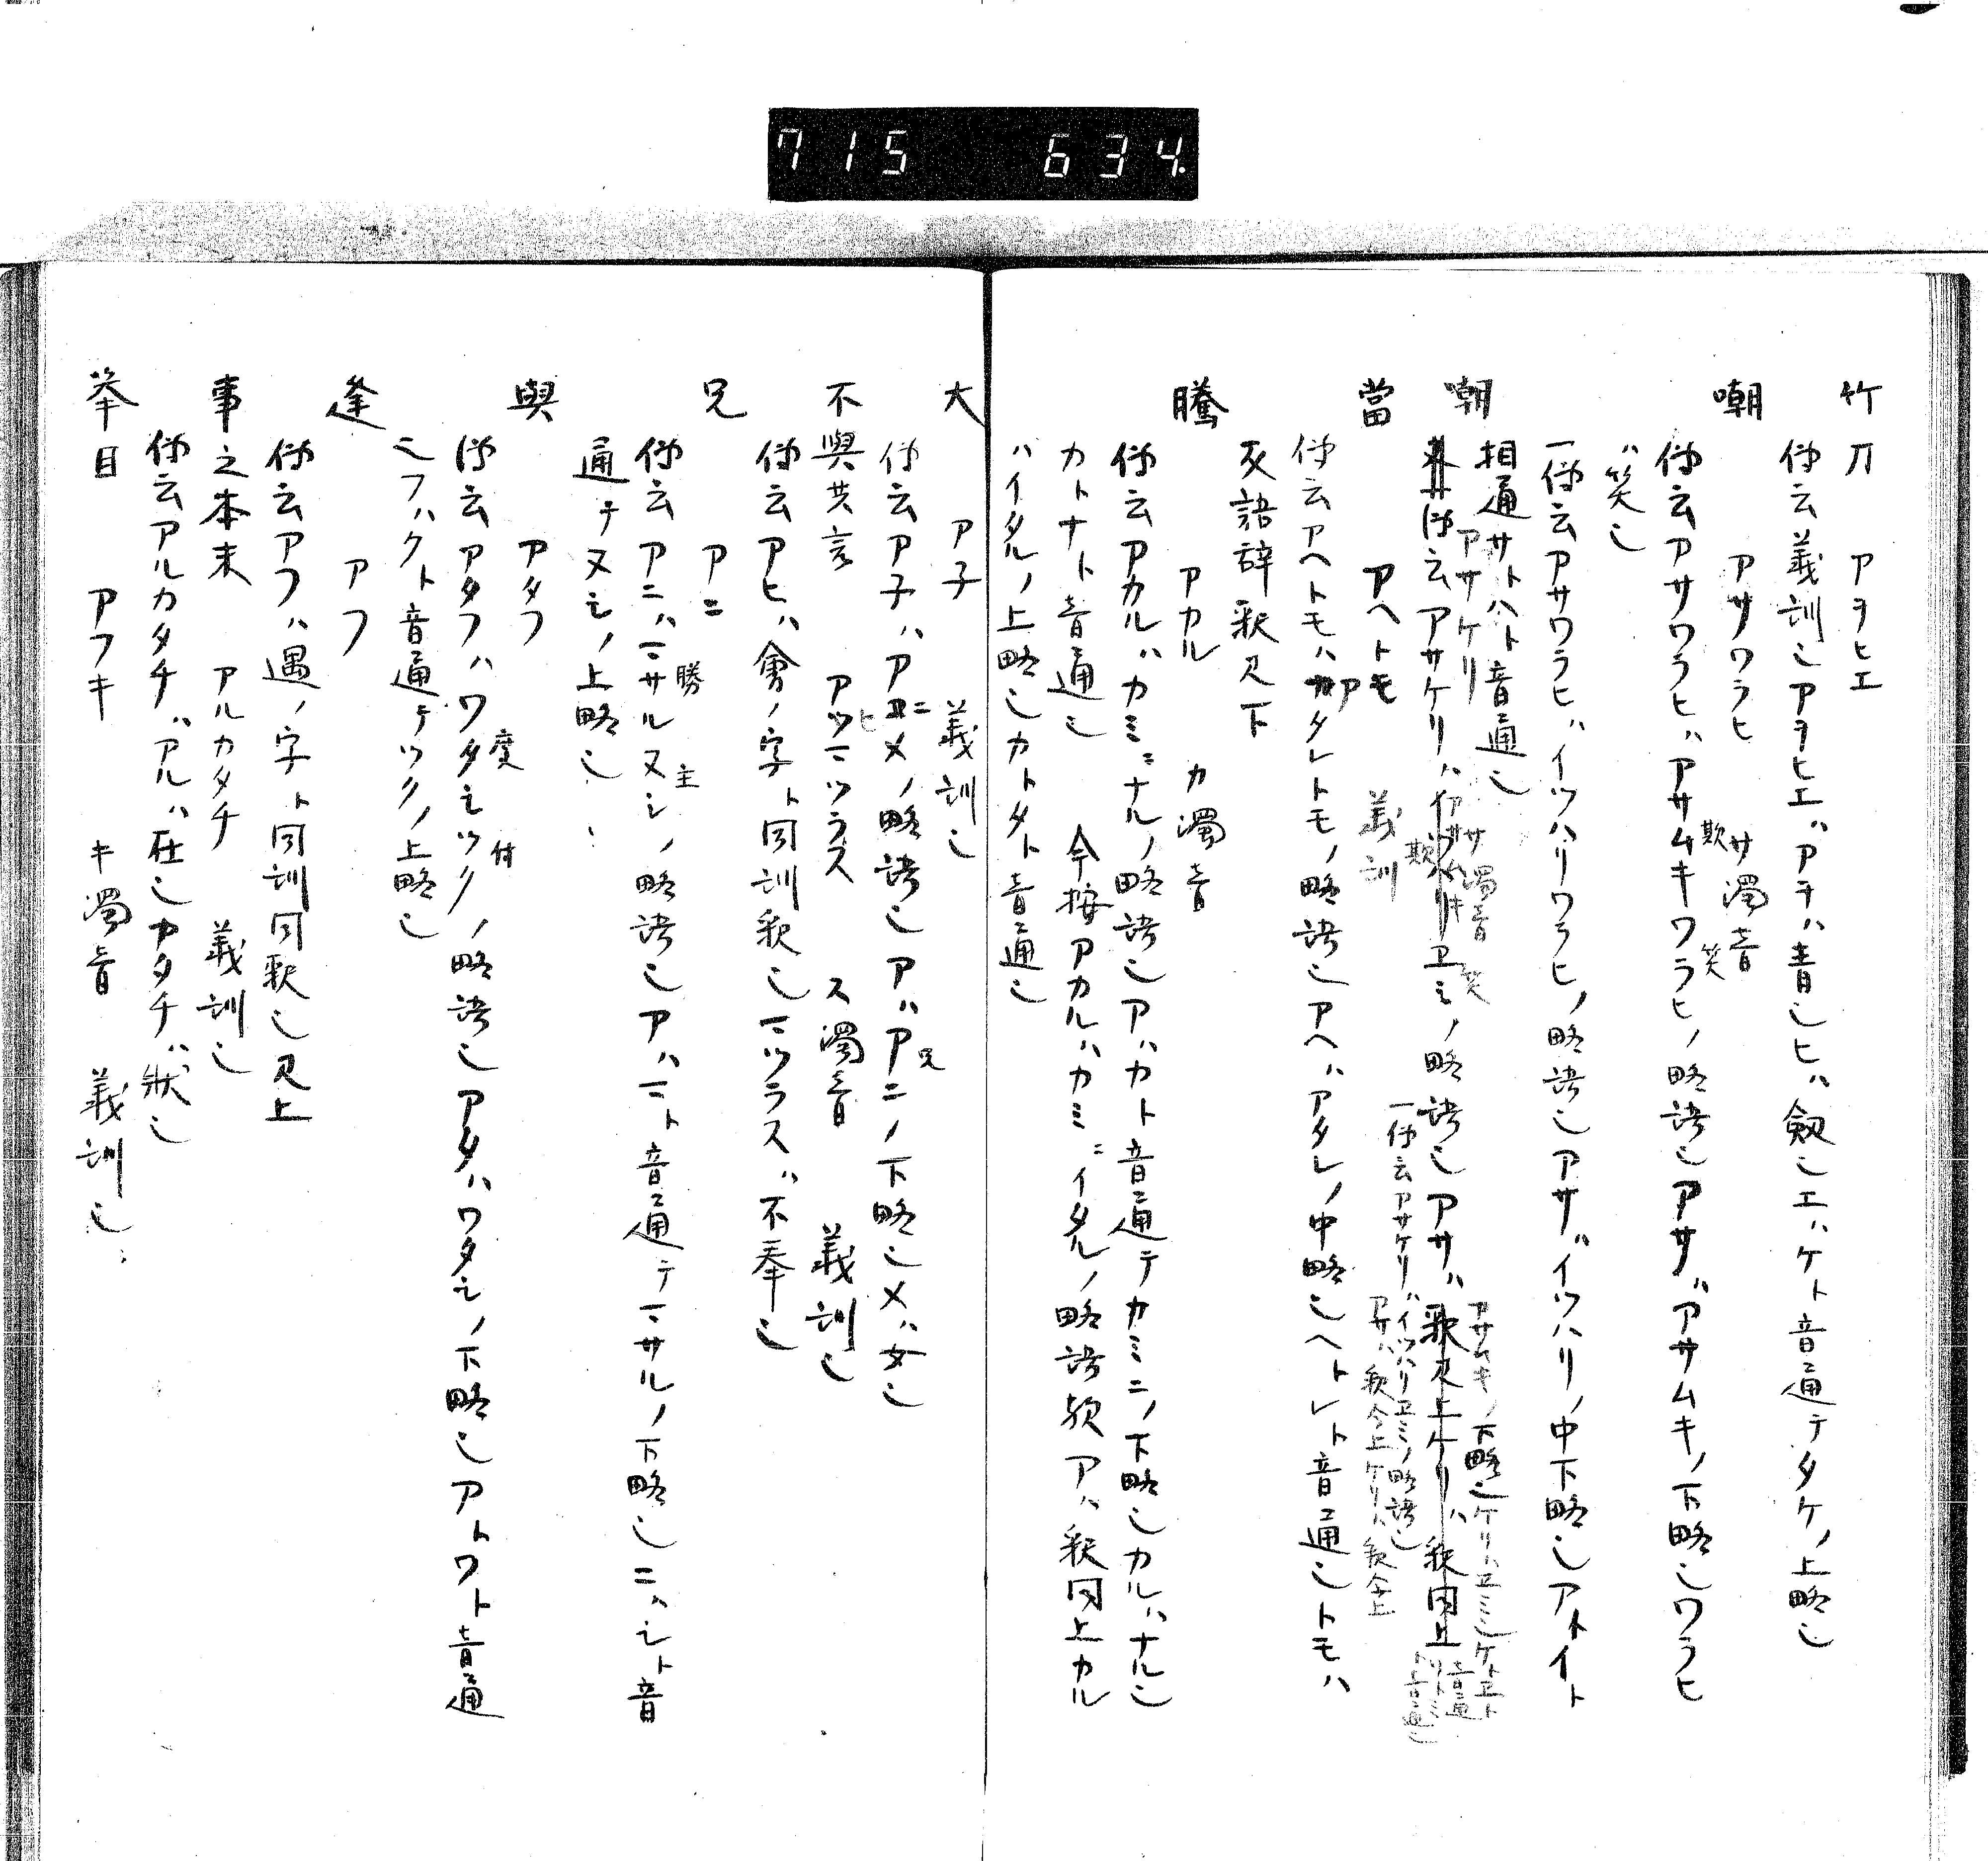 715 634
竹刀 アヲヒエ
仰云義訓也アヲヒエハアヲハ青也ヒハ劔也エハケト音通テタケノ上略也
嘲 アサワラヒ サ濁音
仰云アサワラヒハアサムキワラヒノ略語也アサハアサムキノ下略也ワラヒ
欺 笑
ハ笑也
一仰云アサワラヒハイツハリワラヒノ略語也アサハイツハリノ中下略也アトイト
相通サトハト音通也
嘲 アサケリ サ濁音
仰云アサケリハ
欺 笑
ヱミノ略語也アサハ
アサムキノ下略也ケリハヱミ也ケトヱト
音通リトミト音通也
釈見上ケリハ釈同上
一仰云アサケリハイツハリヱミノ略語也
アサハ釈今上ケリハ釈今上
當 アヘトモ 義訓
仰云アヘトモハアタレトモノ略語也アヘハアタレノ中略也ヘトレト音通也トモハ
灰語辞釈見下
騰 アカル カ濁音
仰云アカルハカミニナルノ略語也アハカト音通テカミニノ下略也カルハナル也
カトナト音通也 今按アカルハカミニイタルノ略語歟アハ釈同上カル
ハイタルノ上略也カトタト音通也
大 アネ 義訓也
仰云アネハアニメノ略語也アハアニノ下略也メハ女也
兄
不與共言 アヒマツラス ス濁音 義訓也
仰云アヒハ會ノ字ト同訓釈也マツラスハ不奉也
兄 アニ
仰云アニハマサルヌシノ略語也アハマト音通テマサルノ下略也ニハシト音
勝 主
通テヌシノ上略也
與 アタフ
仰云アタフハワタシツクノ略語也アタハワタシノ下略也アトワト音通
度 付
也フハクト音通テツクノ上略也
逢 アフ
仰云アフハ遇ノ字ト同訓同釈也見上
事之本末 アルカタチ 義訓也
仰云アルカタチハアルハ在也カタチハ狀也
举目 アフキ キ濁音 義訓也